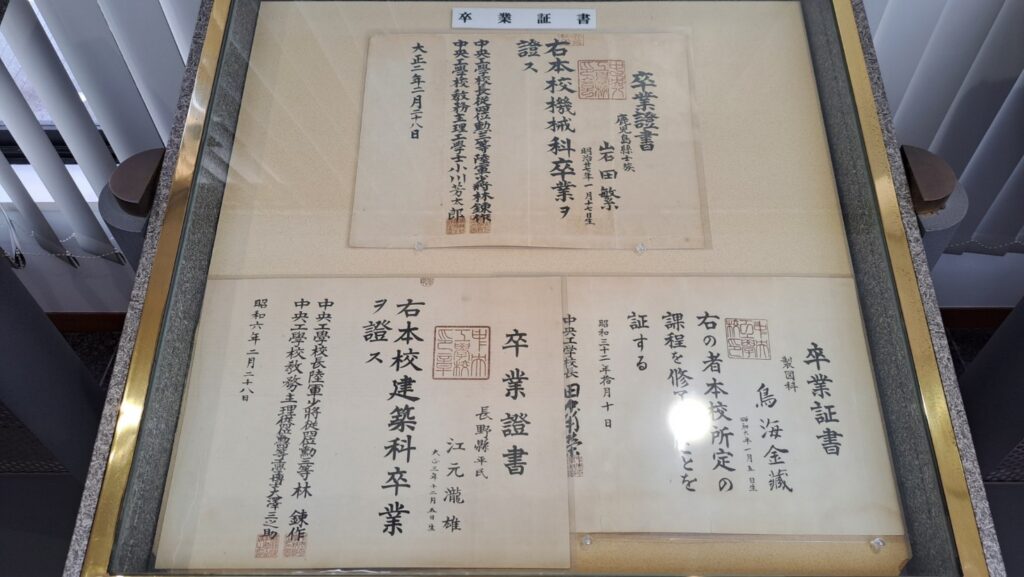 卒業証書
卒業證書
鹿児島縣士族
岩田繁
明治廿七年一月十七日生
右本校機械科卒業ヲ
證ス
中央工學校長從四位勳三等陸軍少將林錬作
中央工學校教務主理工學士小川芳太郎
大正二年十二月二十八日
卒業證書
長野縣平民
江元瀧雄
大正三年十二月五日生
右本校建築科卒業
ヲ證ス
中央工學校長陸軍少將從四位勳三等林錬作
中央工學校教務主理
昭和六年二月二十八日
卒業証書
製図科
鳥海金藏
年一月五日生
右の者本校所定の
課程を修
を
証する
昭和三十二年拾月十日
中央工学校長